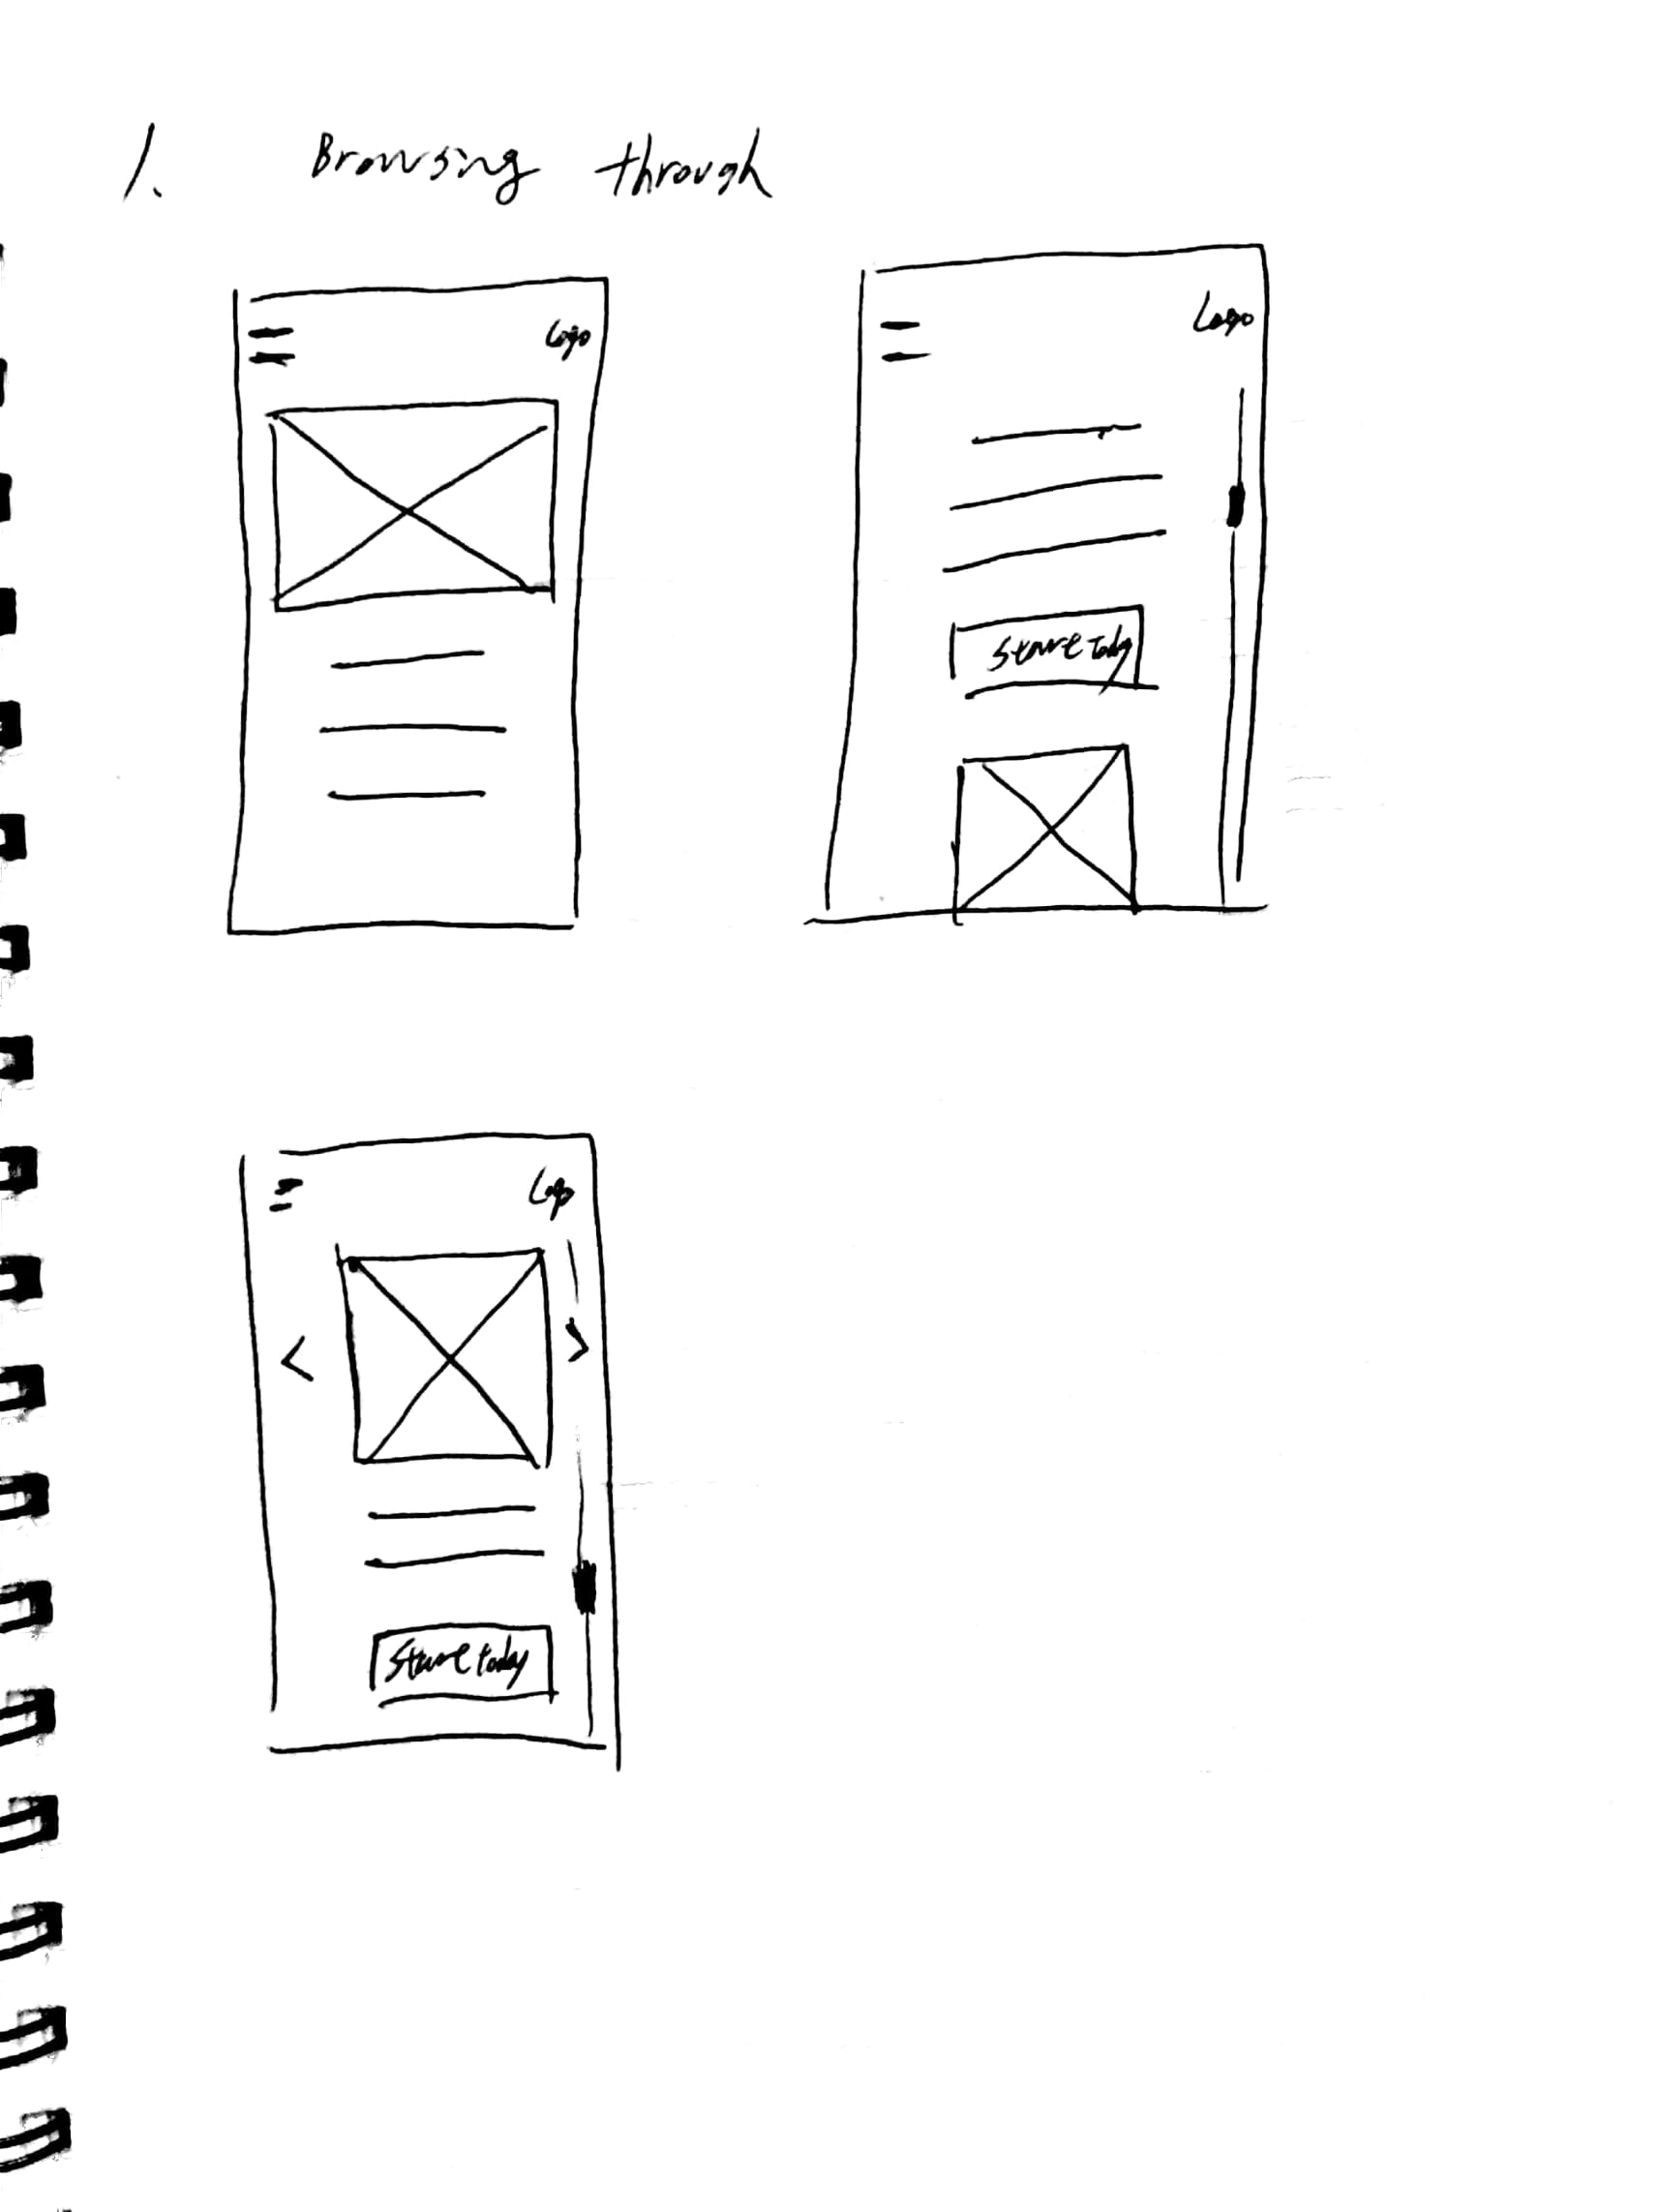 1. Browsing through
Logo
Logo
Start Today
Logo
Start today